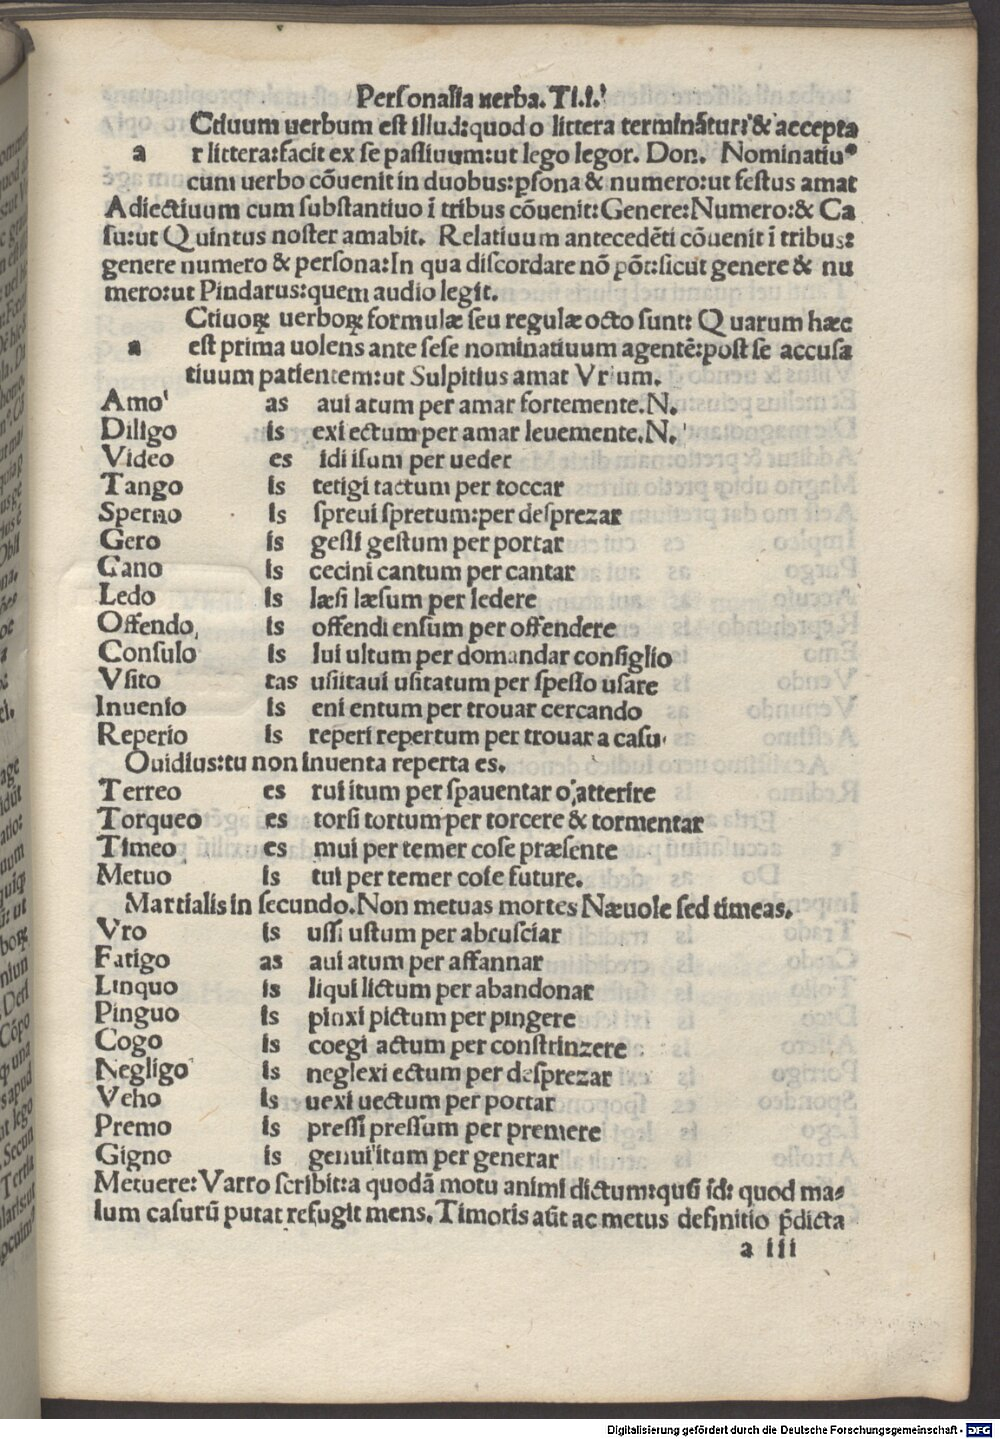 Personalia uerba. TI.I.
Ctiuum uerbum est illud:quod o littera terminãtur:& accepta
a r littera:facit ex se passiuum:ut lego legor. Don. Nominatiu⁹
cum uerbo cõuenit in duobus:ꝑsona & numero:ut festus amat
Adiectiuum cum substantiuo ĩ tribus cõuenit:Genere:Numero:& Ca
su:ut Quintus noster amabit. Relatiuum antecedẽti cõuenit ĩ tribus:
genere numero & persona:In qua discordare nõ põt:sicut genere & nu
mero:ut Pindarus:quem audio legit.
Ctiuoꝝ uerboꝝ formulæ seu regulæ octo sunt: Quarum hæc
a est prima uolens ante sese nominatiuum agentẽ:post se accusa
tiuum patientem:ut Sulpitius amat Vrium.
Amo as aui atum per amar fortemente.N.
Diligo is exi ectum per amar leuemente.N.
Video es idi isum per ueder
Tango is tetigi tactum per toccar
Sperno is spreui spretum:per desprezar
Gero is gessi gestum per portar
Cano is cecini cantum per cantar
Ledo is læsi læsum per ledere
Offendo is offendi ensum per offendere
Consulo is lui ultum per domandar consiglio
Vsito tas usiitaui usitatum per spesso usare
Inuenio is eni entum per trouar cercando
Reperio is reperi repertum per trouar a casu
Ouidius:tu non inuenta reperta es.
Terreo es rui itum per spauentar o atterire
Torqueo es torsi tortum per torcere & tormentar
Timeo es mui per temer cose præsente
Metuo is tui per temer cose future.
Martialis in secundo. Non metuas mortes Næuole sed timeas.
Vro is ussi ustum per abrusciar
Fatigo as aui atum per affannar
Linquo is liqui lictum per abandonar
Pinguo is pinxi pictum per pingere
Cogo is coegi actum per constrinzere
Negligo is neglexi ectum per desprezar
Veho is uexi uectum per portar
Premo is pressi pressum per premere
Gigno is genui itum per generar
Metuere: Varro scribit:a quodã motu animi dictum:qnũ id: quod ma-
lum casurũ putat refugit mens. Timoris aũt ac metus definitio p̃dicta
a iii
Digitalisierung gefördert durch die Deutsche Forschungsgemeinschaft - DFG